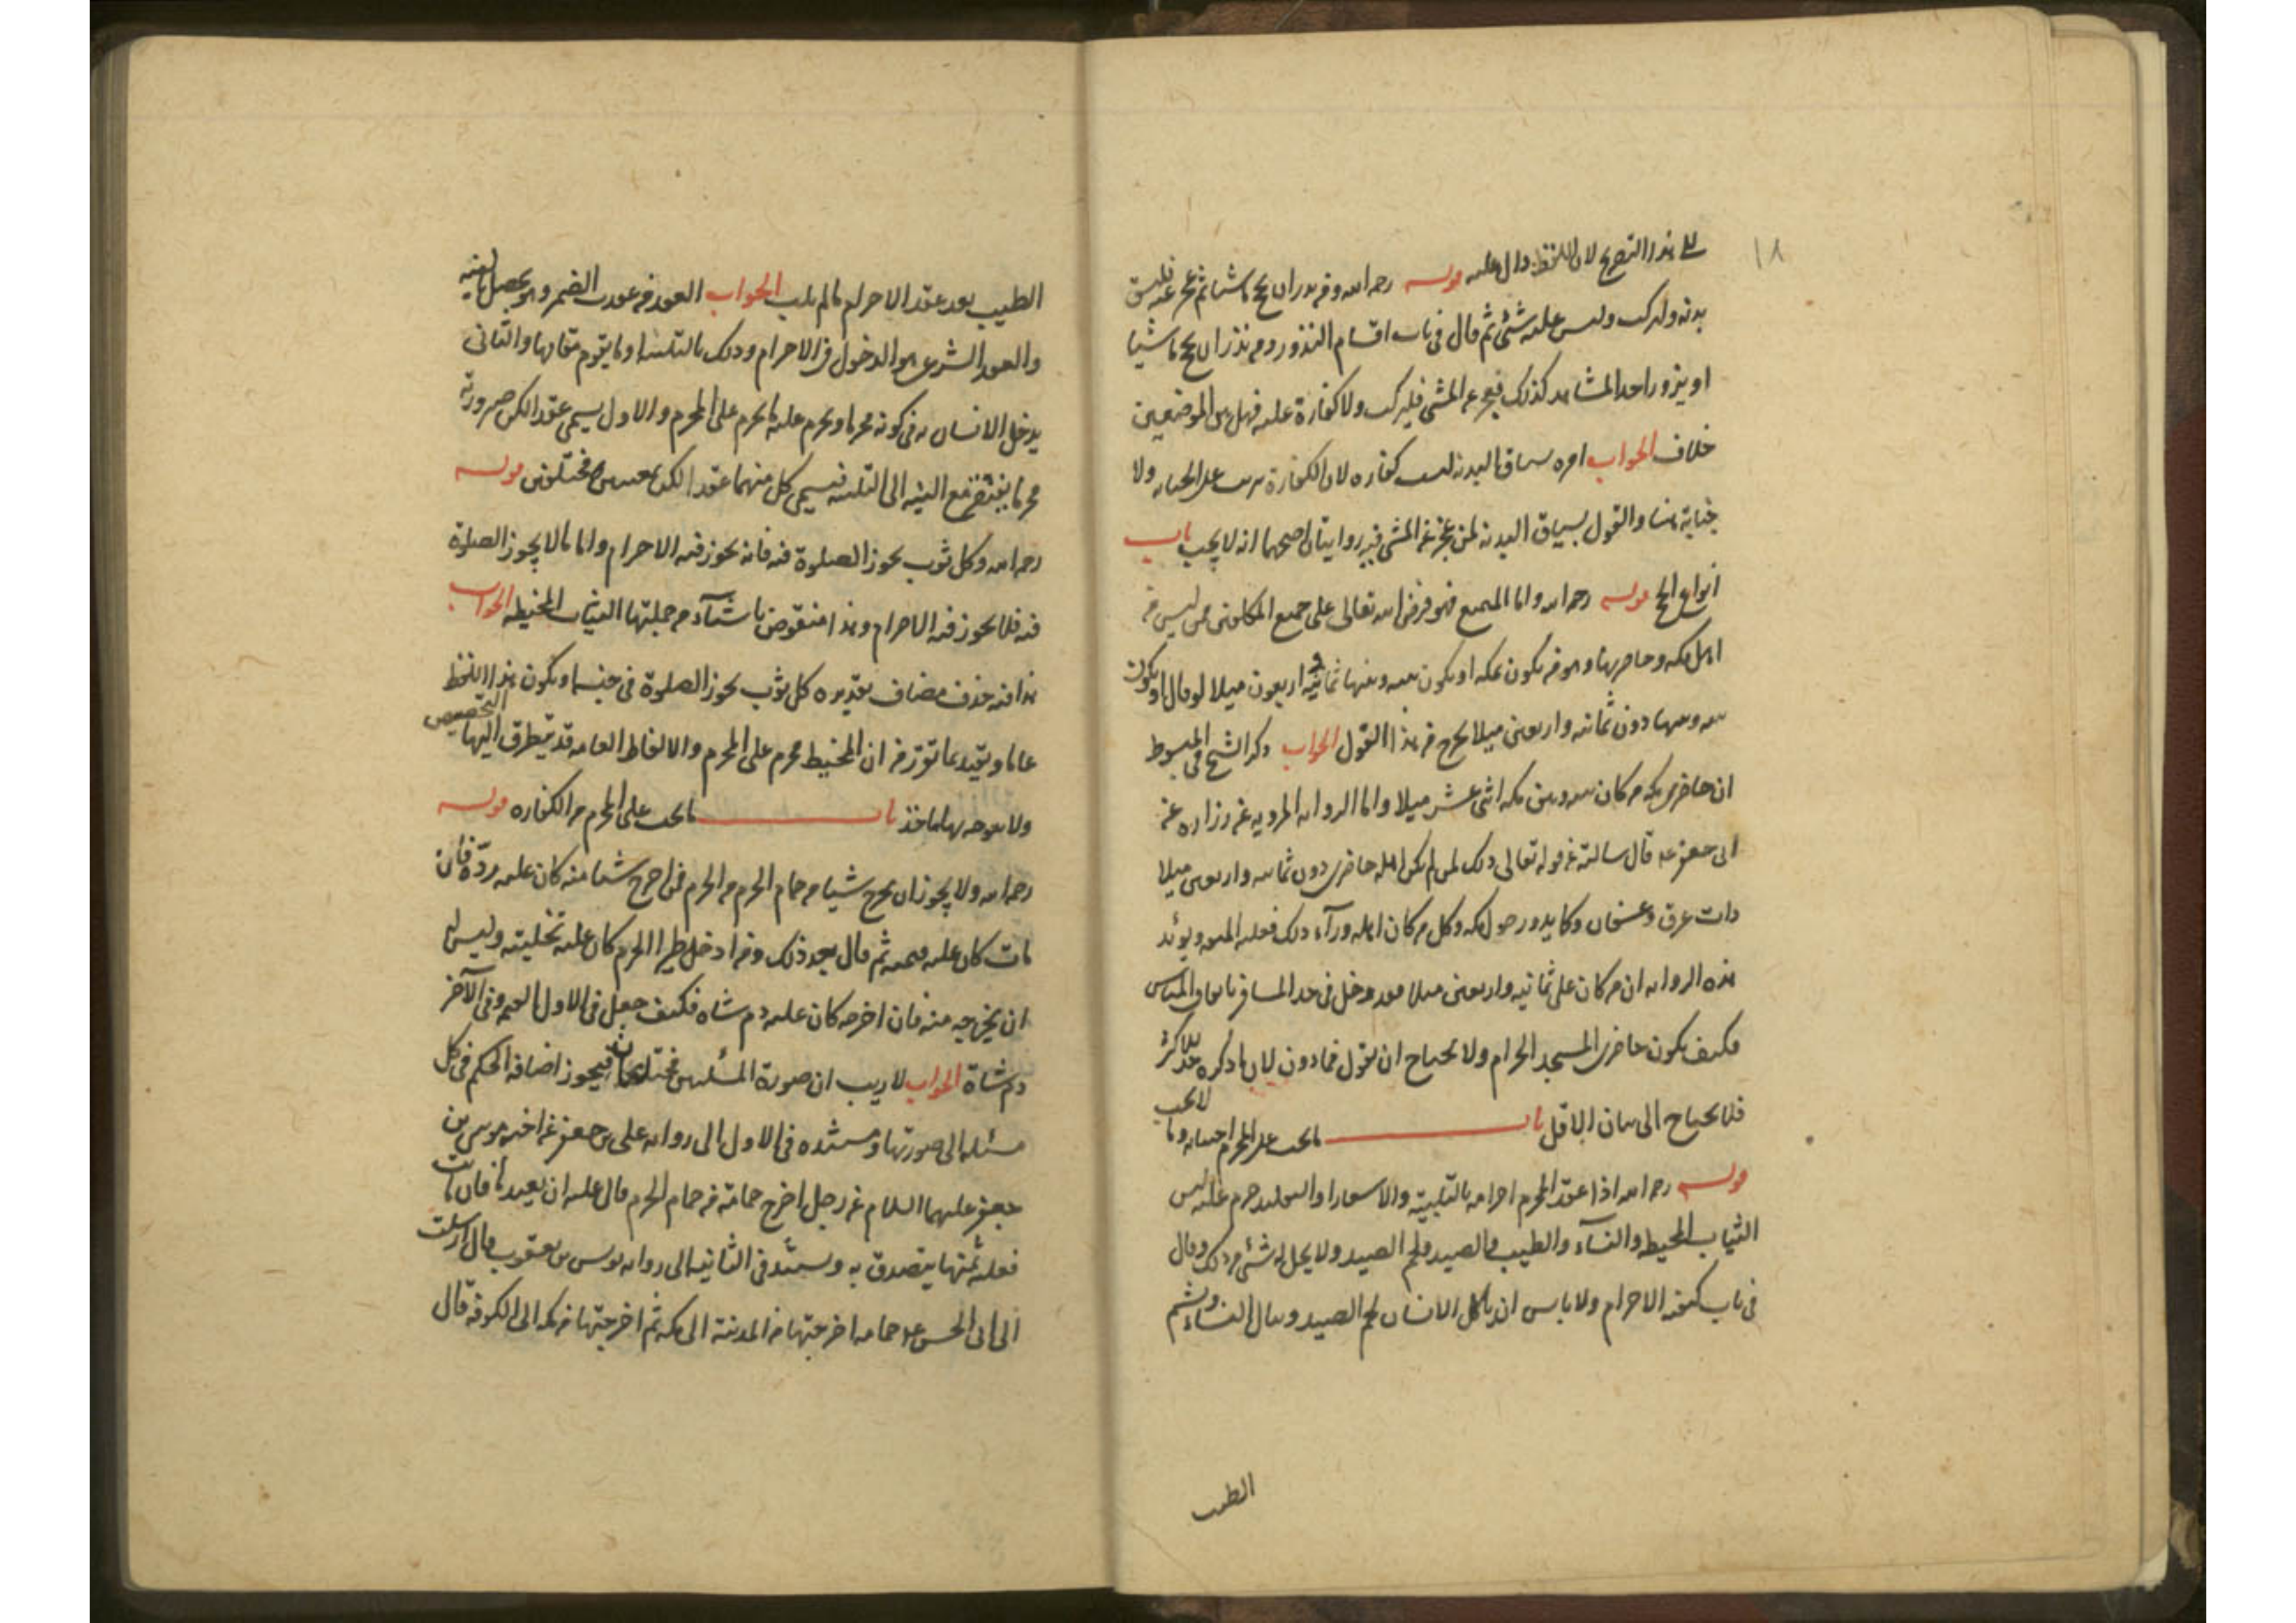 ١٨
على هذا التصريح لان اللفظ دال عليه قوله رحمه الله ومن نذر ان يحج ماشيا ثم عجز عنه فليسق
بدنه وليركب وليس عليه شئ ثم قال في باب اقسام النذور ومن نذر ان يحج ماشيا
او يزور احد المشاهد كذلك فعجز عن المشي فليركب ولا كفارة عليه فهل بين الموضعين
خلاف الجواب امره بسياق البدنه ليست كفاره لان الكفارة تترتب على الجنايه ولا
جناية هنا والقول بسياق البدنه لمن عجز عن المشي فيه روايتان اصحهما انه لا يجب باب
انواع الحج قوله رحمه الله واما التمتع فهو فرض الله تعالى على جميع المكلفين ممن ليس من
اهل مكه وحاضريها وهو من يكون بمكه او يكون بينه وبينها ثمانيه واربعون ميلا لو قال او يكون
بينه وبينها دون ثمانيه واربعين ميلا يخرج من هذا القول الجواب ذكر الشيخ في المبسوط
ان حاضري مكه من كان بينه وبين مكه اثنى عشر ميلا واما الروايه المرويه عن زراره عن
ابى جعفر ع قال سالته عن قوله تعالى ذلك لمن لم يكن اهله حاضري دون ثمانيه واربعين ميلا
ذات عرق وعسفان وكما يدور حول مكه وكل من كان اهله ورآء ذلك فعليه المتعه ويؤيد
هذه الروايه ان من كان على ثمانيه واربعين ميلا فقد دخل في حد المسافر باتفاق الناس
فكيف يكون حاضري المسجد الحرام ولا يحتاج ان يقول فما دون لان ما ذكره حد للاكثر
فلا يحتاج الى بيان الاقل باب ما يجب على المحرم اجتنابه وما لا يجب
قوله رحمه الله اذا عقد المحرم احرامه بالتلبية والاشعار او التقليد حرم عليه لبس
الثياب المخيطه والنسآء والطيب والصيد ولحم الصيد ولا يحل له شئ من ذلك وقال
في باب كيفيه الاحرام ولا باس ان ياكل الانسان لحم الصيد وينال النساء ويشم
الطيب
الطيب بعد عقد الاحرام ما لم يلب الجواب العقد من عقدت الضمير وهو يحصل بالنيه
والعقد الشرعي هو الدخول في الاحرام وذلك بالتلبيه او ما يقوم مقامها والثانى
يدخل الانسان به في كونه محرما ويحرم عليه ما يحرم على المحرم والاول يسمى عقدا لكن صيرورته
محرما يفتقر مع النيه الى التلبيه فيسمى كل منهما عقدا لكن بمعنيين مختلفين قوله
رحمه الله وكل ثوب يجوز الصلوة فيه فانه يجوز فيه الاحرام واما ما لا يجوز الصلوة
فيه فلا يجوز فيه الاحرام وهذا منقوض باشيآء من جملتها الثياب المخيطه الجواب
هذا فيه حذف مضاف تقديره كل ثوب يجوز الصلوة في جنسه او يكون هذا اللفظ
عاما ويقيد بما تقرر من ان المخيط محرم على المحرم والالفاظ العامه قد يتطرق اليها التخصيص
ولا يتوجه بها الماخذ باب ما يجب على المحرم من الكفاره قوله
رحمه الله ولا يجوز ان يخرج شيئا من حمام الحرم من الحرم فمن اخرج شيئا منه كان عليه ردّه فان
مات كان عليه قيمته ثم قال بعد ذلك ومن ادخل طيرا الحرم كان عليه تخليته وليس له
ان يخرجه منه فان اخرجه كان عليه دم شاه فكيف جعل في الاول القيمه وفى الآخر
دم شاة الجواب لا ريب ان صورة المسئلتين مختلفتان فيجوز اضافه الحكم في كل
مسئله الى صورتها ومستنده في الاول الى روايه على بن جعفر عن اخيه موسى بن
جعفر عليهما السلام عن رجل اخرج حمامة من حمام الحرم قال عليه ان يعيدها فان ماتت
فعليه ثمنها يتصدق به ويستند في الثانيه الى روايه يونس بن يعقوب قال ارسلت
الى ابى الحسن ع حمامه اخرجتها من المدينة الى مكه ثم اخرجتها من مكه الى الكوفه قال